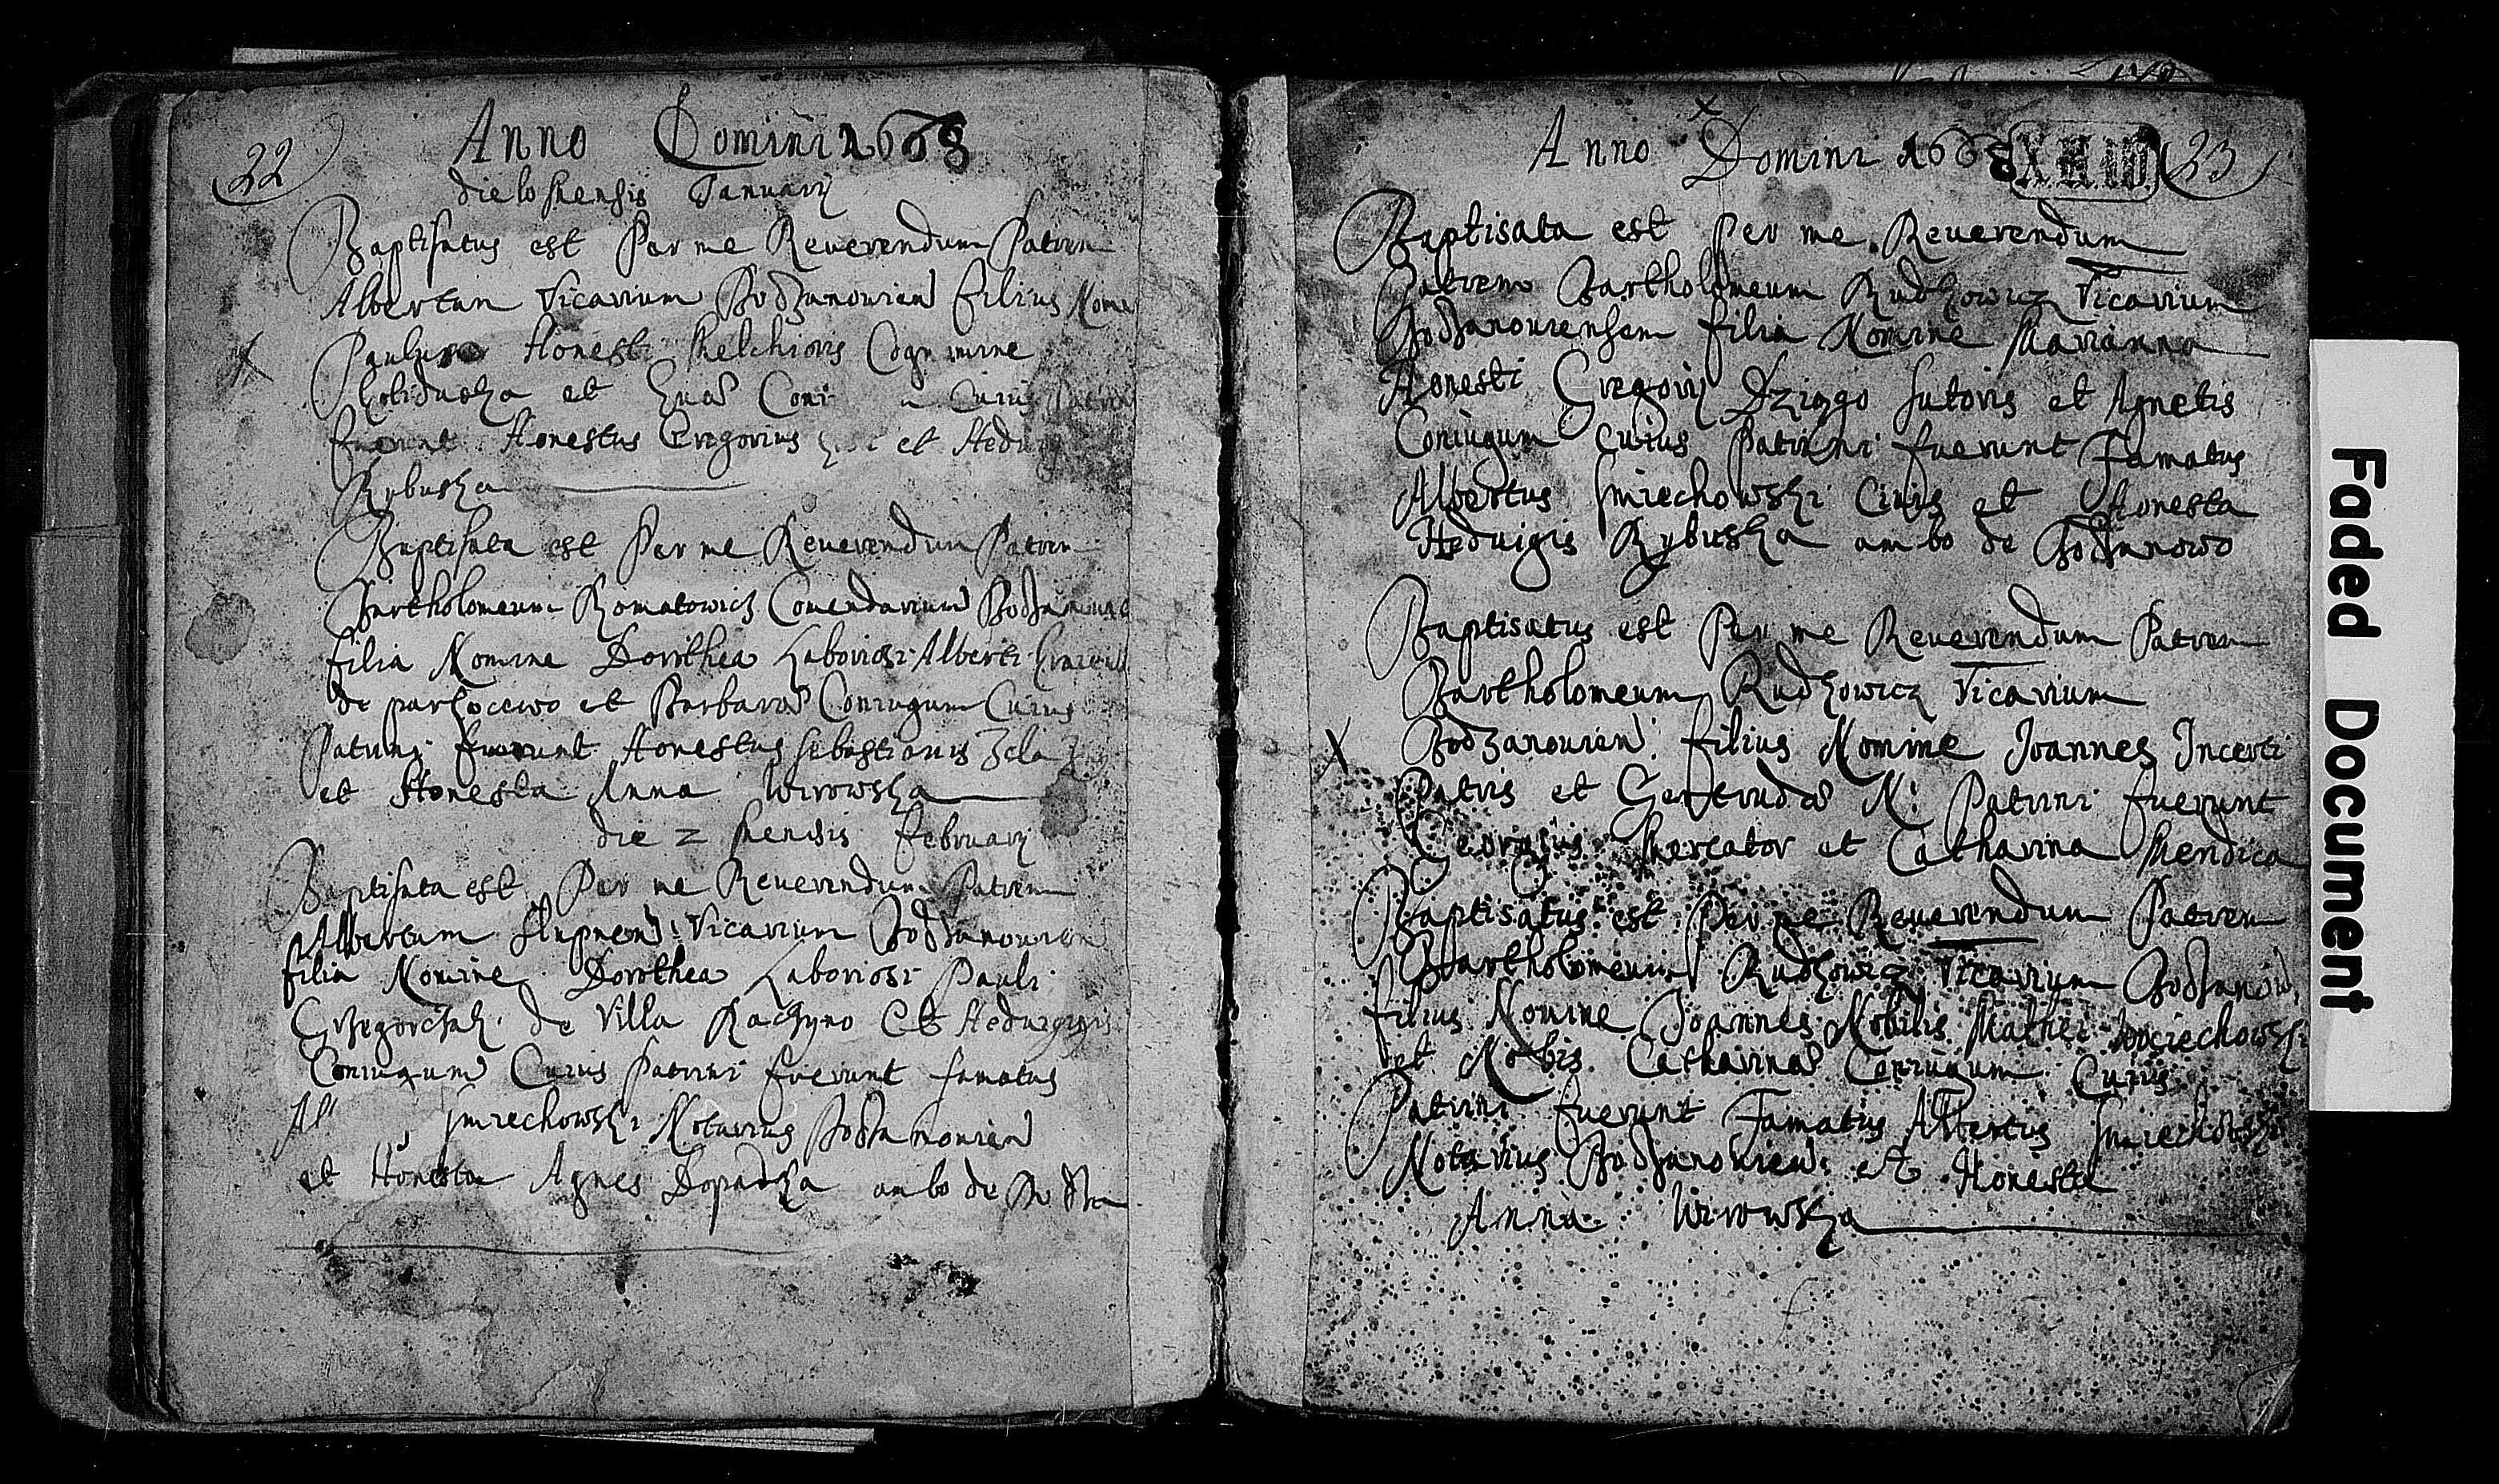 22
Anno Domini 1668
die 10 Mensis Januarij
Baptisatus est Per me Reuerendum Patrem
Albertum Vicarium Bodzanouien filius Nomi
Paulus Honesti Melchioris Cognimine
et Euae Cuius
fuerunt Honestus Gregorius et Hedu
Rybuska
Baptisata est Per me Reuerendum Patrem
Bartholomeum Romatowicz Comendarium Bodzanoui
filia Nomine Dorothea Laboriosi Alberti
de parkocewo et Barbarae Coniugum Cuius
Patrini fuerunt Honestus Sebastianis
et Honesta Anna Wirowska
die 2 Mensis februarij
Baptisata est Per me Reuerendum Patrem
Albertum Slupnen: Vicarium Bodzanouien
filia Nomine Dorothea Laboriosi Pauli
Grzegorczak de Villa Raczyno Et Heduigigis
Coniugum Cuius Patrini fuerunt famatus
Al Smiechowski Notarius Bodzanouien
et Honesta Agnes Dopadka ambo de Bodza
Anno Domini 1668 23
Baptisata est Per me Reuerendum
Patrem Bartholomeum Rudkowicz Vicarium
Bodzanouiensem filia Nomine Marianna
Honesti Gregorij Dzingo Sutoris et Agnetis
Coniugum Cuius Patrini fuerunt Famatus
Albertus Smiechowski Ciuis et Honesta
Heduigis Rybuska ambo de Bodzanowo
Baptisatus est Per me Reuerendum Patrem
Bartholomeum Rudkowicz Vicarium
Bodzanouien: filius Nomine Joannes Incerti
Patris et Gertrudae N: Patrini fuerunt
Georgius Mercator et Catharina Mendica
Baptisatus est Per me Reuerendum Patrem
Bartholomeum Rudkowicz Vicarium Bodzanow.
filius Nomine Joannes Nobilis Mathei Woiciechowski
et Nobis Catharinae Coniugum Cuius
Patrini fuerunt Famatus Albertus Smiechowski
Notarius Bodzanouien: et Honesta
Anna Wirowska
Faded Document